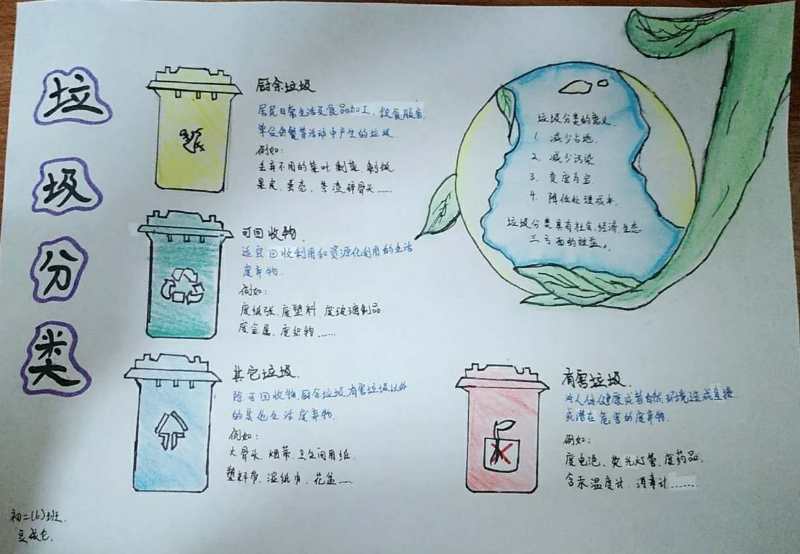 垃
圾
分
类
厨余垃圾
居民日常生活及食品加工、饮食服务、
单位供餐等活动中产生的垃圾
例如:
丢弃不用的菜叶 剩菜 剩饭
果皮、蛋壳、茶渣 碎骨头......
可回收物
适宜回收利用和资源化利用的生活
废弃物.
例如:
废纸张、废塑料 废玻璃制品
废金属、废织物......
其它垃圾
除可回收物、厨余垃圾、有害垃圾以外
的其他生活废弃物.
例如:
大骨头 烟蒂 卫生间用纸
塑料袋、湿纸巾、花盆......
垃圾分类的意义
1. 减少占地
2. 减少污染
3. 变废为宝
4. 降低处理成本
垃圾分类具有社会、经济、生态
三方面的效益。
有害垃圾
对人体健康或者自然环境造成直接
或潜在危害的废弃物.
例如:
废电池、荧光灯管、废药品
含汞温度计 消毒计......
初二(6)班